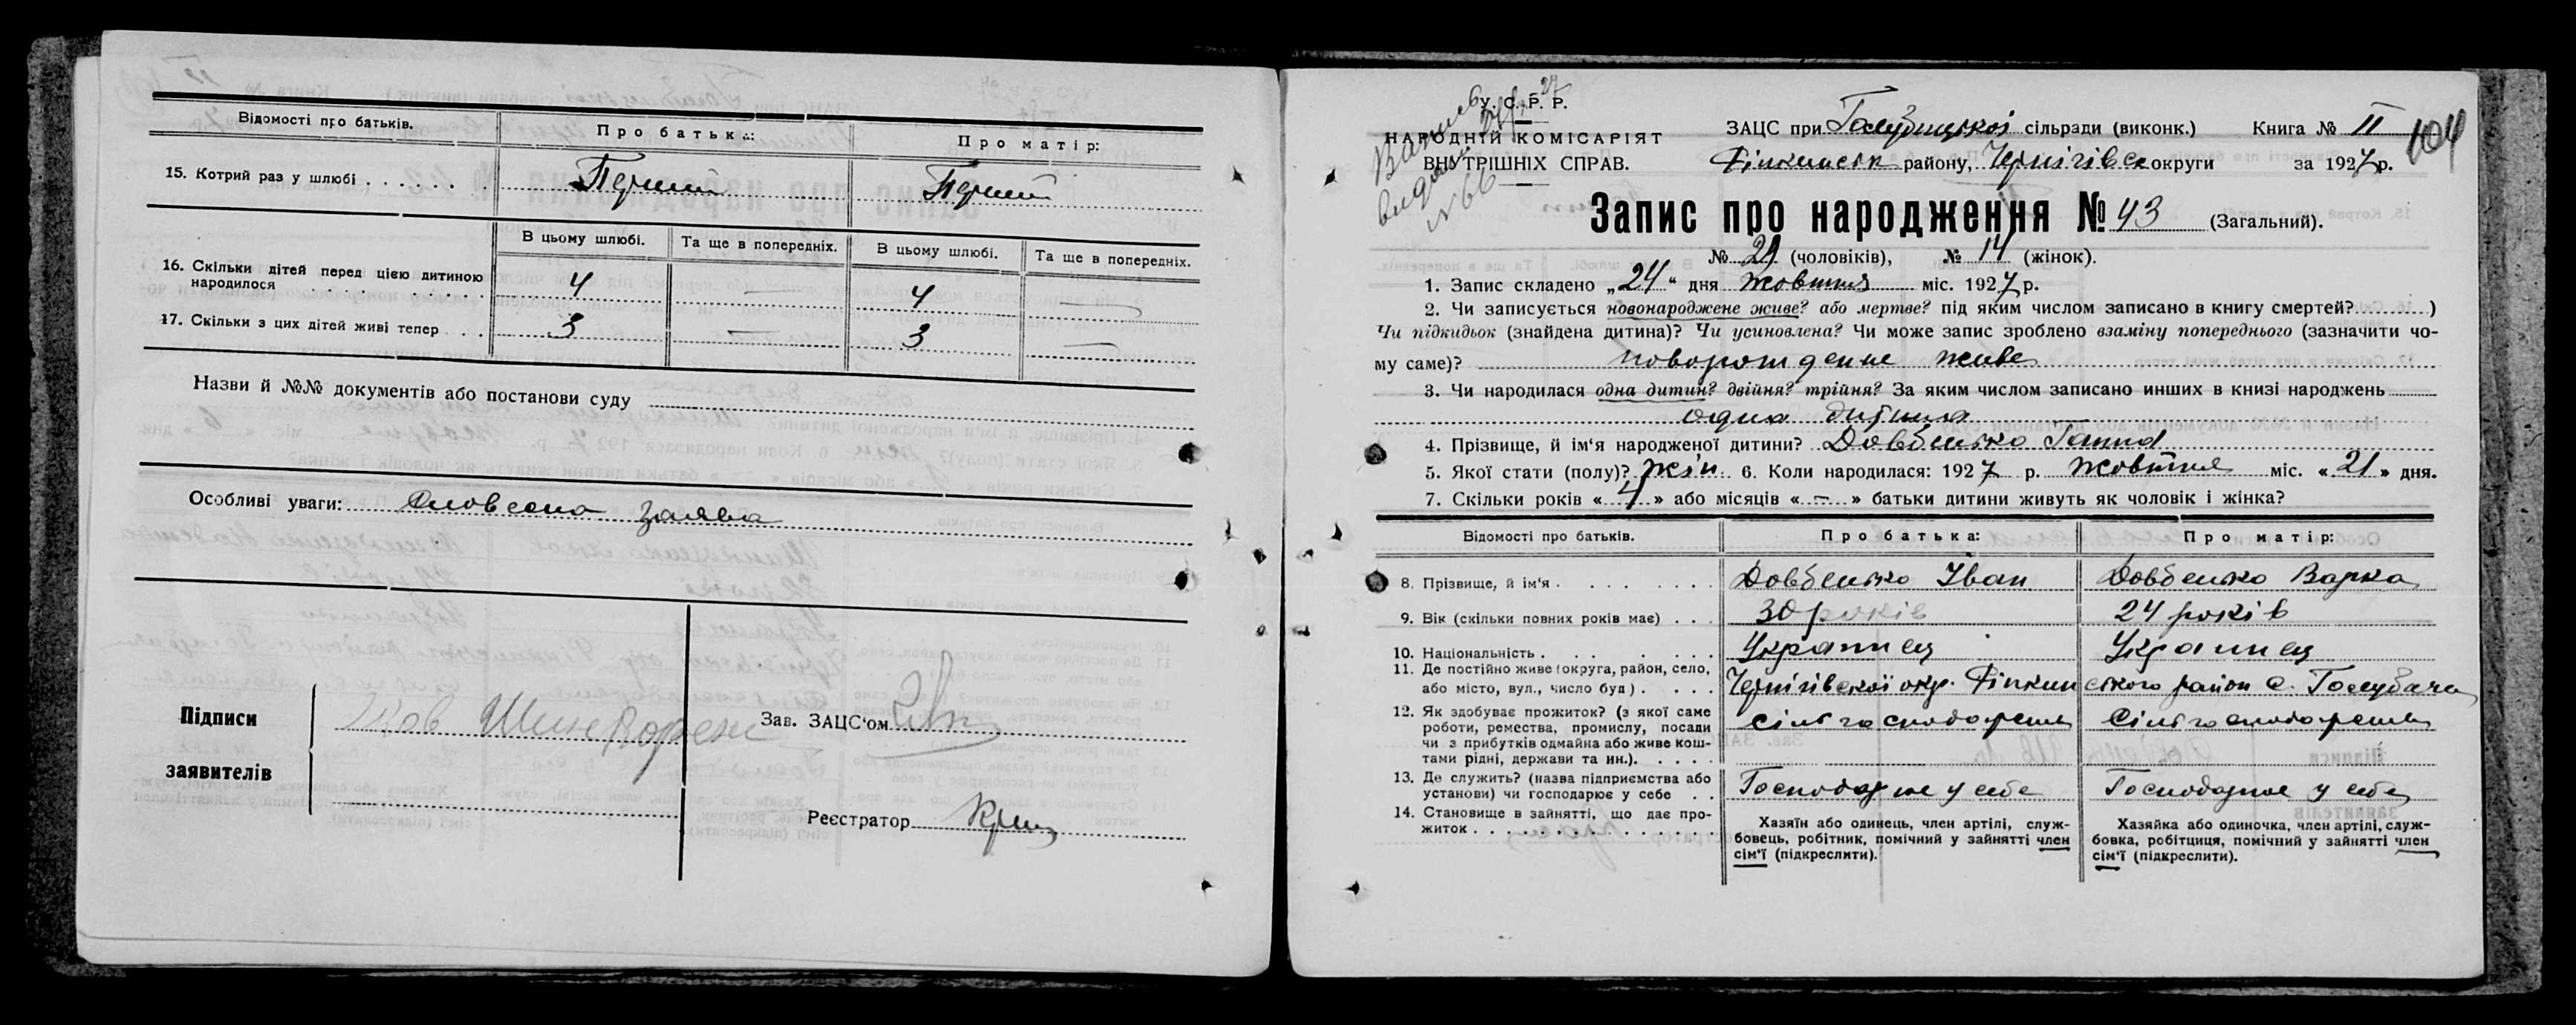 Відомості про батьків.
Про батька:
Про матір:
15. Котрий раз у шлюбі
Перший
Перший
В цьому шлюбі.
Та ще в попередніх.
В цьому шлюбі.
Та ще в попередніх.
16. Скільки дітей перед цією дитиною
народилося
4
—
4
—
17. Скільки з цих дітей живі тепер
3
—
3
—
Назви й №№ документів або постанови суду
Особливі уваги: Словесна заява
Підписи
заявителів
Зав. ЗАЦС'ом
Реєстратор
У. С. Р. Р.
НАРОДНІЙ КОМІСАРІЯТ
ВНУТРІШНІХ СПРАВ.
№ 66
ЗАЦС при Голубицької сільради (виконк.) Книга № II
104
Ріпкинськ району, Чернігівск округи за 1927 р.
Запис про народження № 43 (Загальний).
№ 29 (чоловіків), № 14 (жінок).
1. Запис складено „24“ дня Жовтня міс. 1927 р.
2. Чи записується новонароджене живе? або мертве? під яким числом записано в книгу смертей? )
Чи підкидьок (знайдена дитина)? Чи усиновлена? Чи може запис зроблено взаміну попереднього (зазначити чо-
му саме)? новорождене живе
3. Чи народилася одна дитин? двійня? трійня? За яким числом записано инших в книзі народжень
одна дитина
4. Прізвище, й ім'я народженої дитини? Довбенько Ганна
5. Якої стати (полу)? жін. 6. Коли народилася: 1927 р. Жовтня міс. «21» дня.
7. Скільки років «4» або місяців «–» батьки дитини живуть як чоловік і жінка?
Відомості про батьків.
Про батька:
Про матір:
8. Прізвище, й ім'я
Довбенько Іван
Довбенько Варка
9. Вік (скільки повних років має)
30 років
24 років
10. Національність
Украинец
Украинец
11. Де постійно живе (округа, район, село,
або місто, вул., число буд)
Чернігівської окр. Ріпкин
ського район с. Голубичи
12. Як здобуває прожиток? (з якої саме
роботи, ремества, промислу, посади
чи з прибутків одмайна або живе кош-
тами рідні, держави та ин.).
13. Де служить? (назва підприємства або
установи) чи господарює у себе
Господарює у себе
Господарює у себе
14. Становище в зайнятті, що дає про-
житок
Хазяїн або одинець, член артілі, служ-
бовець, робітник, помічний у зайнятті член
сім'ї (підкреслити).
Хазяйка або одиночка, член артілі, служ-
бовка, робітниця, помічний у зайнятті член
сім'ї (підкреслити).